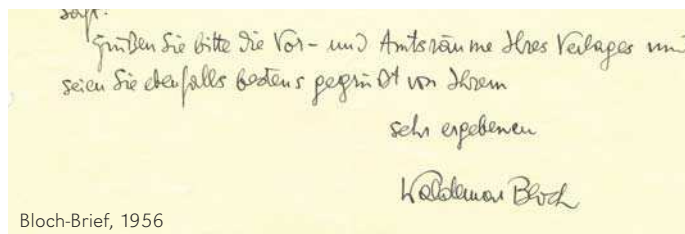 sagt.
Grüßen Sie bitte die Vor- und Amtsräume Ihres Verlages und
seien Sie ebenfalls bestens gegrüßt von Ihrem
sehr ergebenen
Waldemar Bloch
Bloch-Brief, 1956